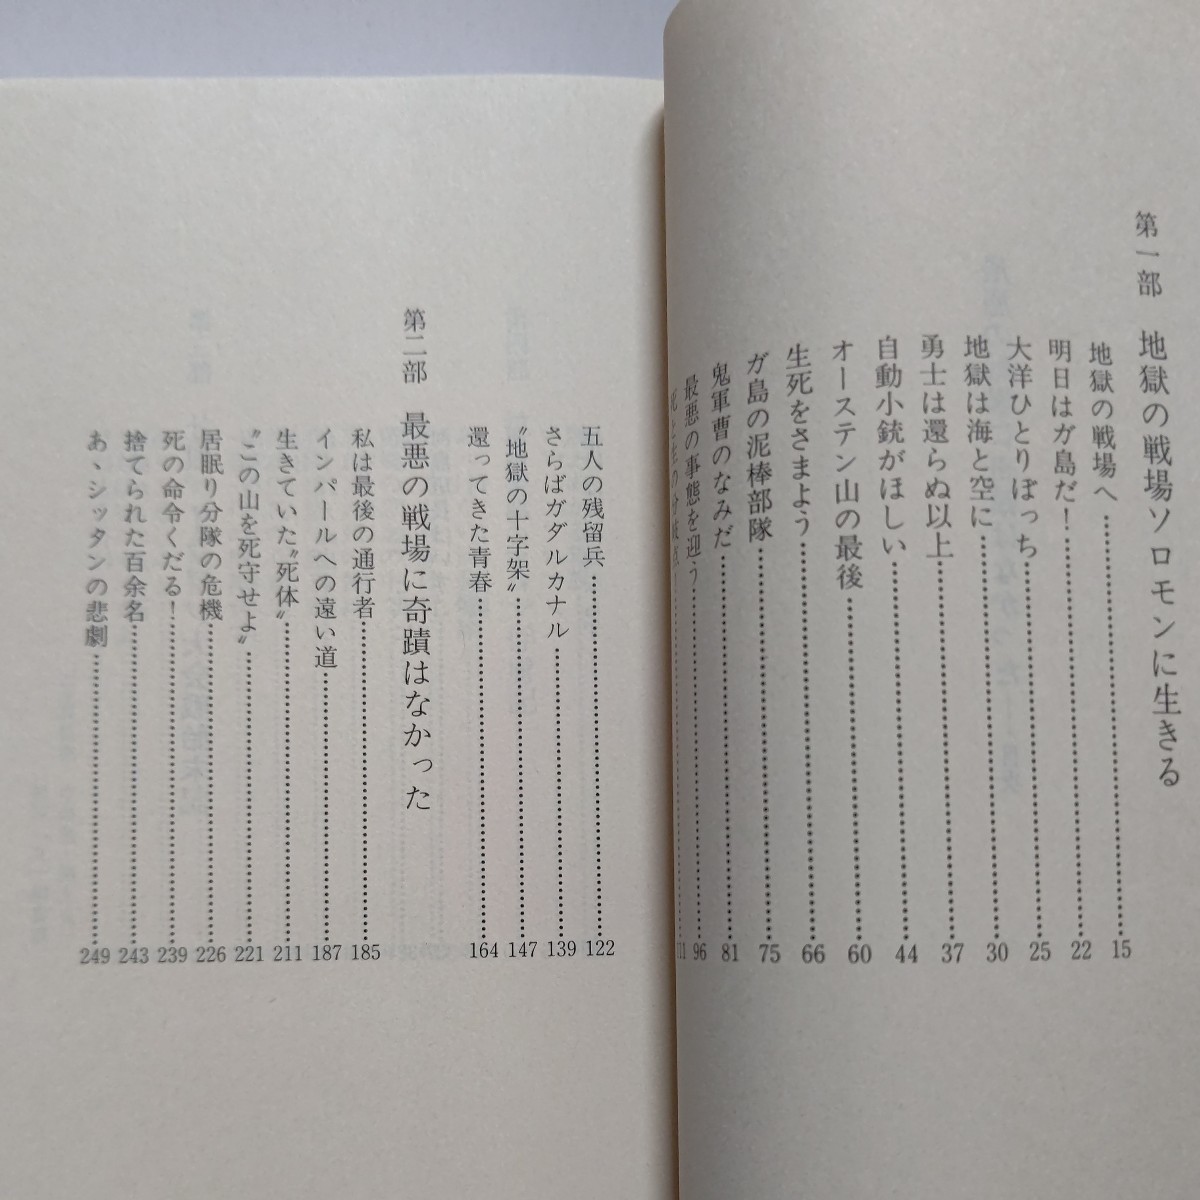 第一部 地獄の戦場ソロモンに生きる
地獄の戦場へ 15
明日はガ島だ! 22
大洋ひとりぼっち 25
地獄は海と空に 30
勇士は還らぬ以上 37
自動小銃がほしい 44
オーステン山の最後 60
生死をさまよう 66
ガ島の泥棒部隊 75
鬼軍曹のなみだ 81
最悪の事態を迎う 96
五人の残留兵 122
さらばガダルカナル 139
〝地獄の十字架〟 147
還ってきた青春 164
第二部 最悪の戦場に奇蹟はなかった
私は最後の通行者 185
インパールへの遠い道 187
生きていた〝死体〟 211
〝この山を死守せよ〟 221
居眠り分隊の危機 226
死の命令くだる! 239
捨てられた百余名 243
あゝシッタンの悲劇 249